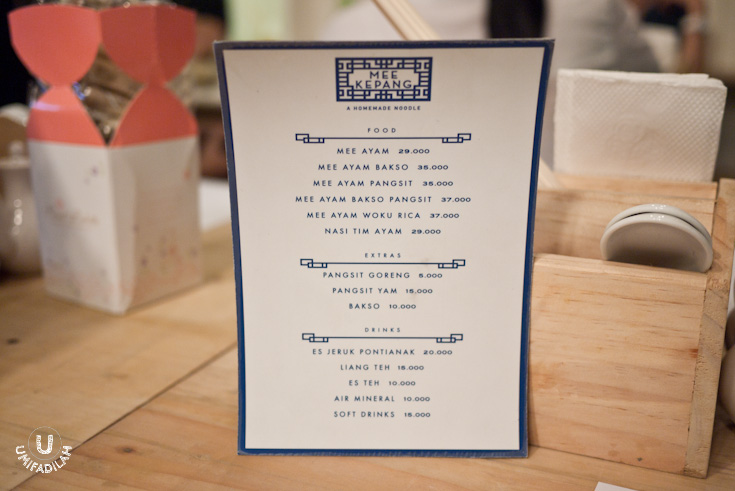 MEE
KEPANG
A HOMEMADE NOODLE
FOOD
MEE AYAM 29.000
MEE AYAM BAKSO 35.000
MEE AYAM PANGSIT 35.000
MEE AYAM BAKSO PANGSIT 37.000
MEE AYAM WOKU RICA 37.000
NASI TIM AYAM 29.000
EXTRAS
PANGSIT GORENG 5.000
PANGSIT YAM 15.000
BAKSO 10.000
DRINKS
ES JERUK PONTIANAK 20.000
LIANG TEH 18.000
ES TEH 10.000
AIR MINERAL 10.000
SOFT DRINKS 15.000
U
UMIFADILAH